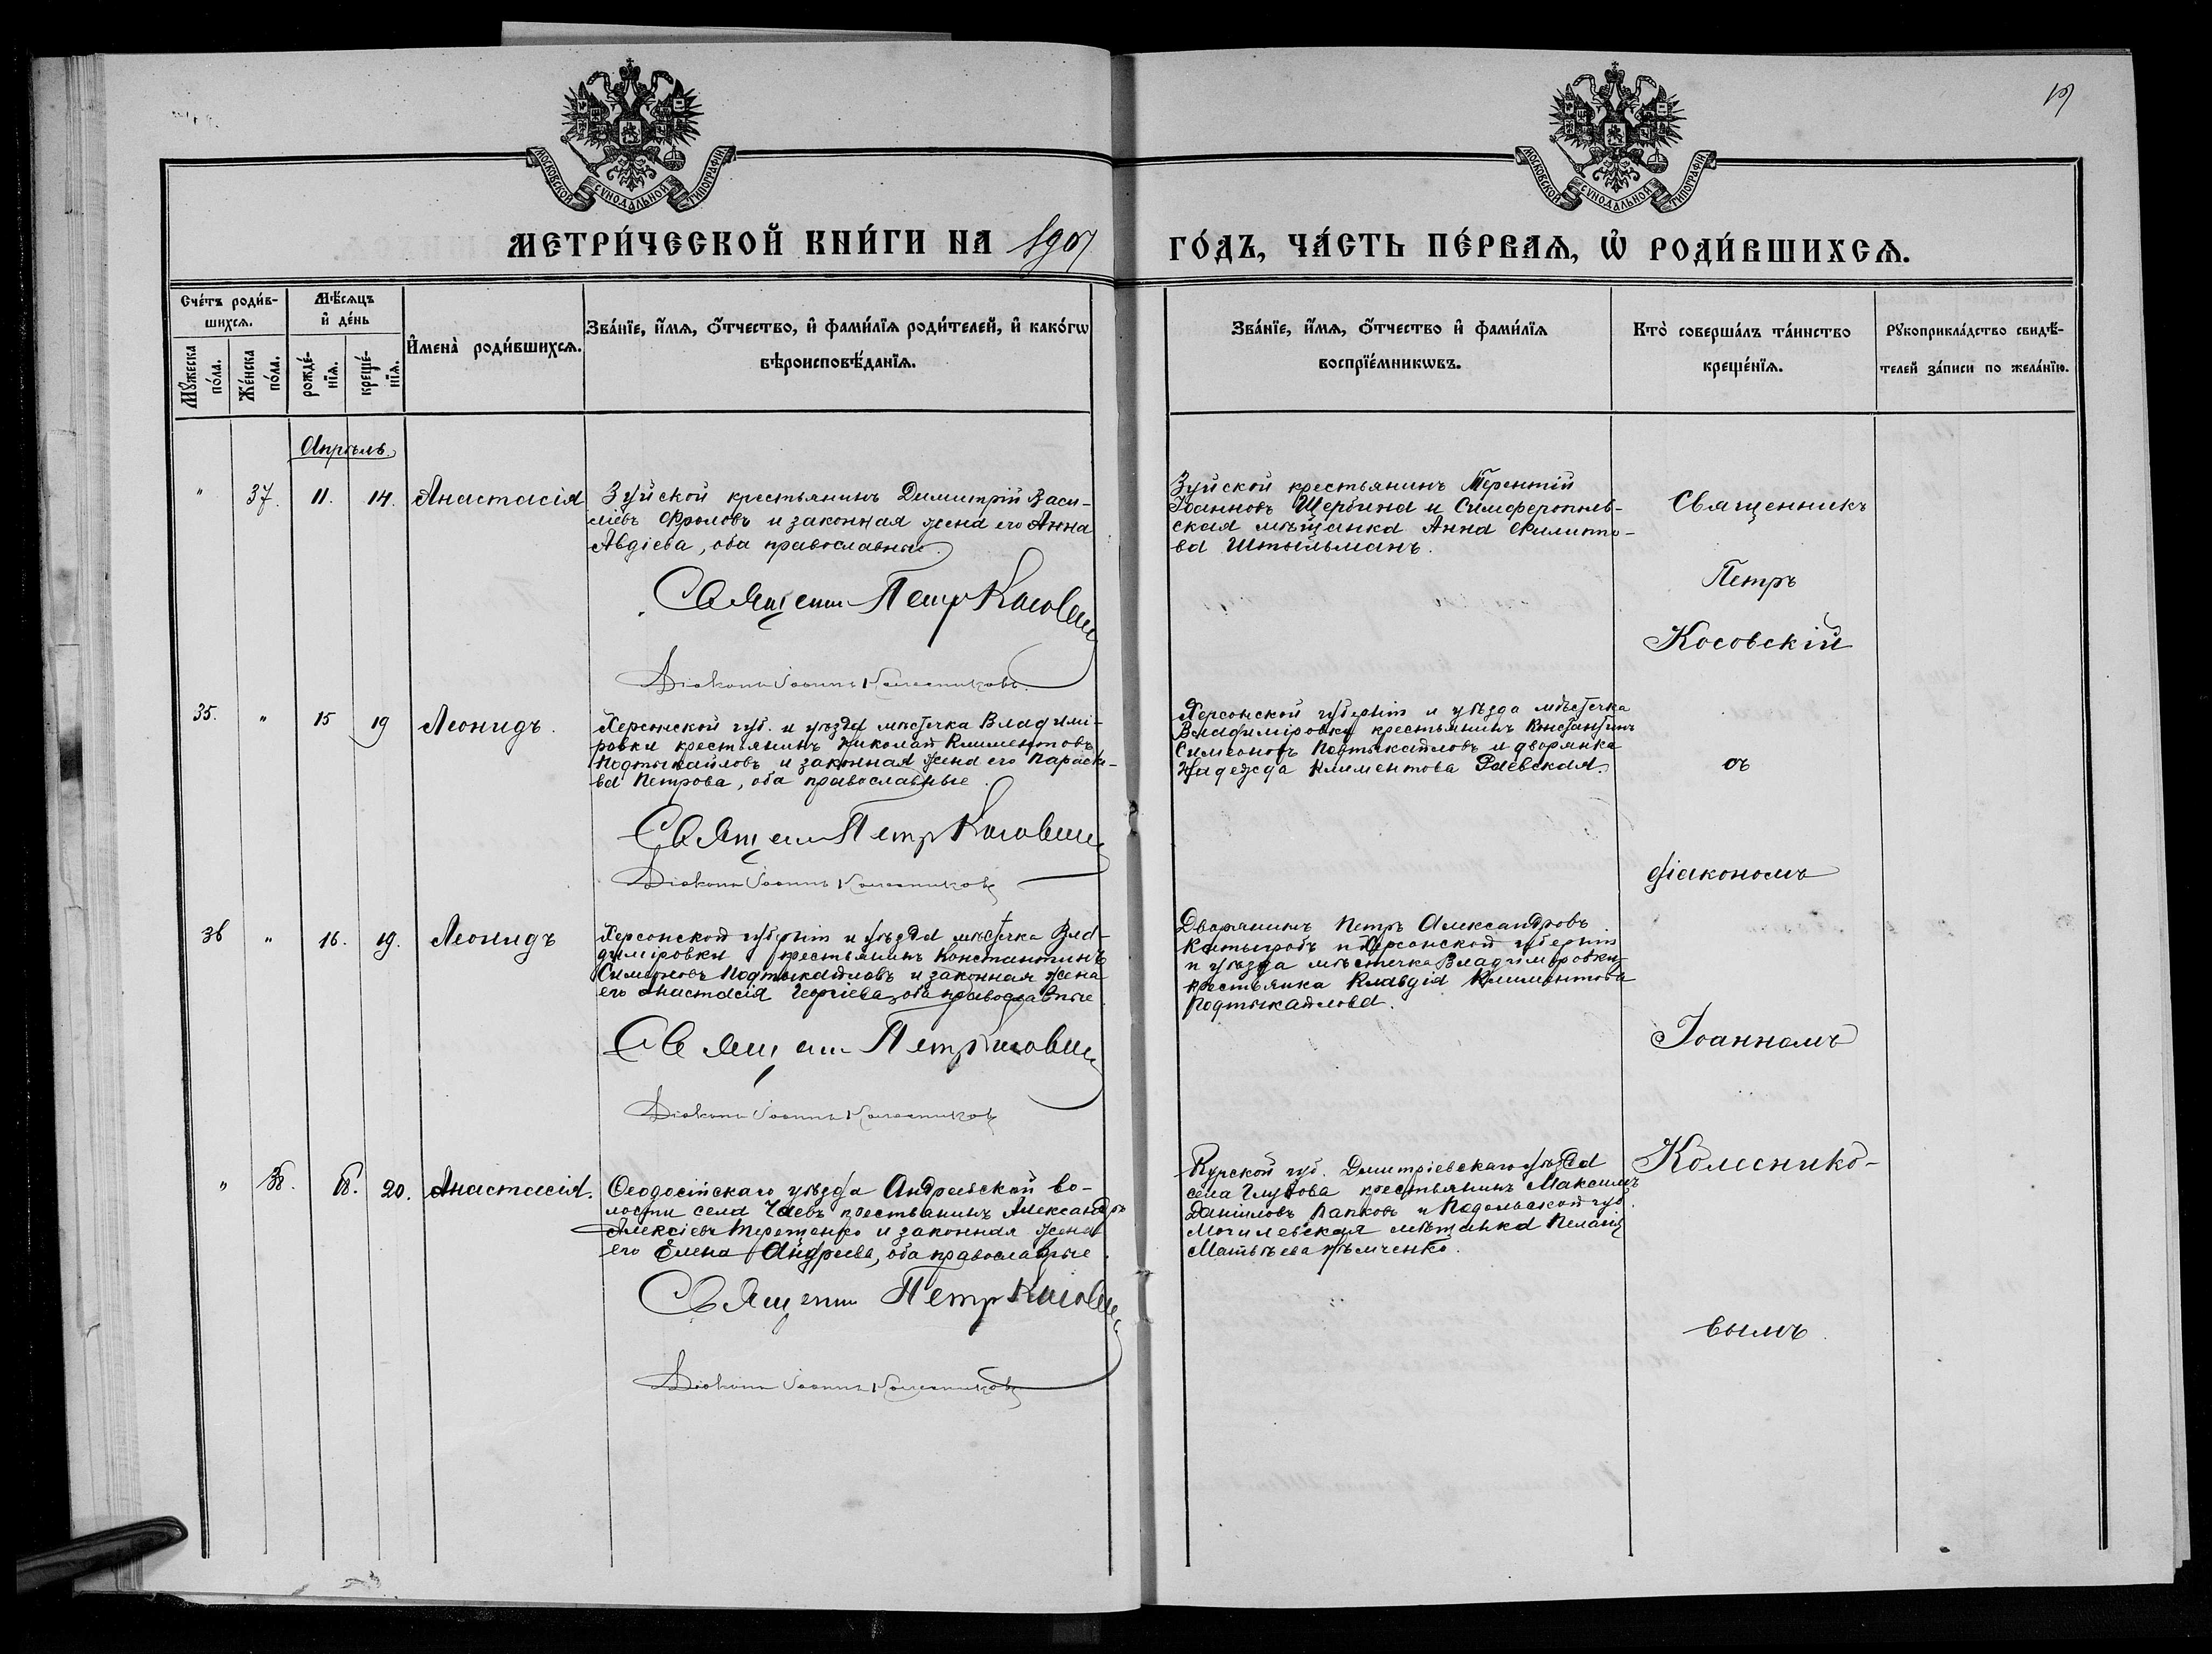 19
МОСКОВСКОЙ СѴНОДАЛЬНОЙ ТИПОГРАФІИ
МОСКОВСКОЙ СѴНОДАЛЬНОЙ ТИПОГРАФІИ
МЕТРИ́ЧЕСКОЙ КНИ́ГИ НА 1907 ГО́ДЪ, ЧА́СТЬ ПЕ́РВАѦ, Ѡ҆ РОДИ́ВШИХСѦ.
Сче́тъ роди́в-
шихсѧ.
Мꙋ́жеска по́ла.
Же́нска по́ла.
Мѣ́сѧцъ
и҆ де́нь
рожде́-
нїѧ.
креще́-
нїѧ.
И҆мена̀ роди́вшихсѧ.
Зва́нїе, и҆́мѧ, ѻ҆́тчество, и҆ фами́лїѧ роди́телей, и҆ како́гѡ
вѣроисповѣ́данїѧ.
Зва́нїе, и҆́мѧ, ѻ҆́тчество и҆ фами́лїѧ
воспрїе́мникѡвъ.
Кто̀ соверша́лъ та́инство
креще́нїѧ.
Рꙋкоприкла́дство свидѣ́-
телей за́писи по жела́нїю.
Апрѣль
" 37. 11. 14. Анастасія
Зуйской крестьянинъ Димитрій Васи-
ліевъ Фроловъ и законная жена его Анна
Авдіева, оба православные.
Священн Петръ Косовскій
Діаконъ Іоаннъ Колесниковъ
Зуйской крестьянинъ Терентій
Іоанновъ Щербина и Симферополь-
ская мѣщанка Анна Филиппо-
ва Штыльманъ.
Священникъ
Петръ
Косовскій
35. " 15 19 Леонидъ.
Херсонской губ. и уѣзда мѣстечка Владимі-
ровки крестьянинъ Николай Климентовъ
Подтыкайловъ и законная жена его Параске-
ва Петрова, оба православные.
Священ Петръ Косовскій
Діаконъ Іоаннъ Колесниковъ
Херсонской губерніи и уѣзда мѣстечка
Владиміровки крестьянинъ Константинъ
Симеоновъ Подтыкайловъ и дворянка
Надежда Климентова Раевская.
съ
діакономъ
36 " 16. 19. Леонидъ
Херсонской губерніи и уѣзда мѣстечка Вла-
диміровки крестьянинъ Константинъ
Симеоновъ Подтыкайловъ и законная жена
его Анастасія Георгіева, оба православные
Священ Петръ Косовскій
Діаконъ Іоаннъ Колесниковъ
Дворянинъ Петръ Александровъ
и Херсонской губерніи
и уѣзда мѣстечка Владиміровки
крестьянка Клавдія Климентова
Подтыкайлова.
Іоанномъ
" 38. 18. 20. Анастасія.
Ѳеодосійскаго уѣзда Андреевской во-
лости села крестьянинъ Александръ
Алексіевъ Терещенко и законная жена
его Елена Андреева, оба православные.
Священн Петръ Косовскій
Діаконъ Іоаннъ Колесниковъ
Курской губ. Димитріевскаго уѣзда
села крестьянинъ Максимъ
Даніиловъ Папковъ и Подольской губ.
Могилевская мѣщанка Пелагія
Матвѣева
Колеснико-
вымъ.